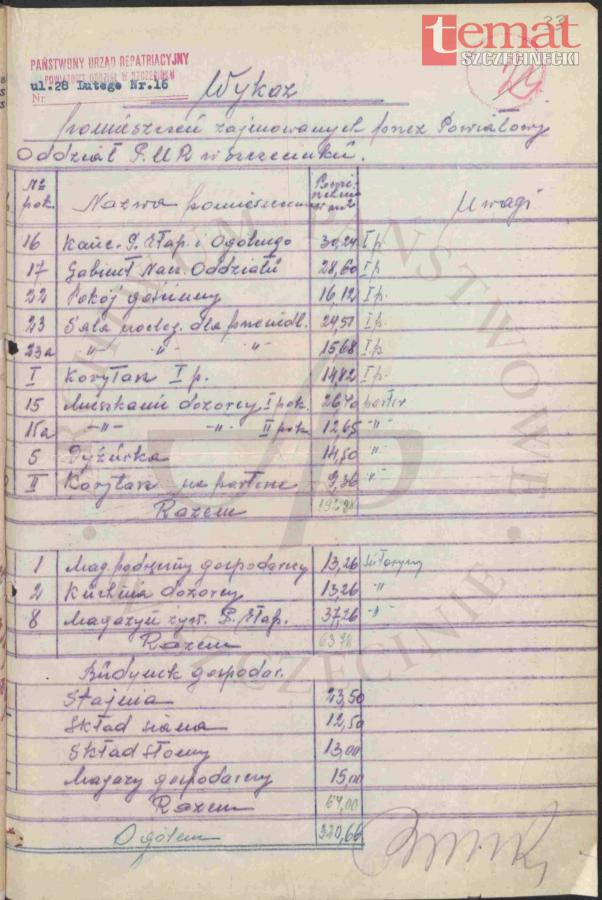 33
temat
SZCZECINECKI
PAŃSTWOWY URZĄD REPATRIACYJNY
POWIATOWY ODDZIAŁ W SZCZECINKU
ul.28 Lutego Nr.16
Nr
Wykaz
pomieszczeń zajmowanych przez Powiatowy
Oddział P.U.R w Szczecinku.
№ pok. Nazwa pomieszczenia Uwagi
16 Kanc. P. Etap. i Ogólnego 30,24 I p.
17 Gabinet Nacz. Oddziału 28,60 I p.
22 Pokój gościnny 16,12 I p.
23 Sala nocleg. dla przesiedl. 24,51 I p.
23a -"- -"- -"- 15,68 I p.
I Korytarz I p. 14,82 I p.
15 Mieszkanie dozorcy I pok. 26,40 parter
15a -"- -"- II pok 12,65 -"-
5 Dyżurka 14,50 "
II Korytarz na parterze 9,36 "
Razem
1 Mag. podręczny gospodarczy 13,26 sutereny
2 Kuchnia dozorcy 13,26 "
8 Magazyn żyw. P. Etap. 37,26 -"-
Razem 63,78
Budynek gospodar.
Stajnia 23,50
Skład siana 12,50
Skład słomy 13,00
Magazyn gospodarczy 15,00
Razem 64,00
Ogółem 320,66
ARCHIWUM PAŃSTWOWE W SZCZECINIE